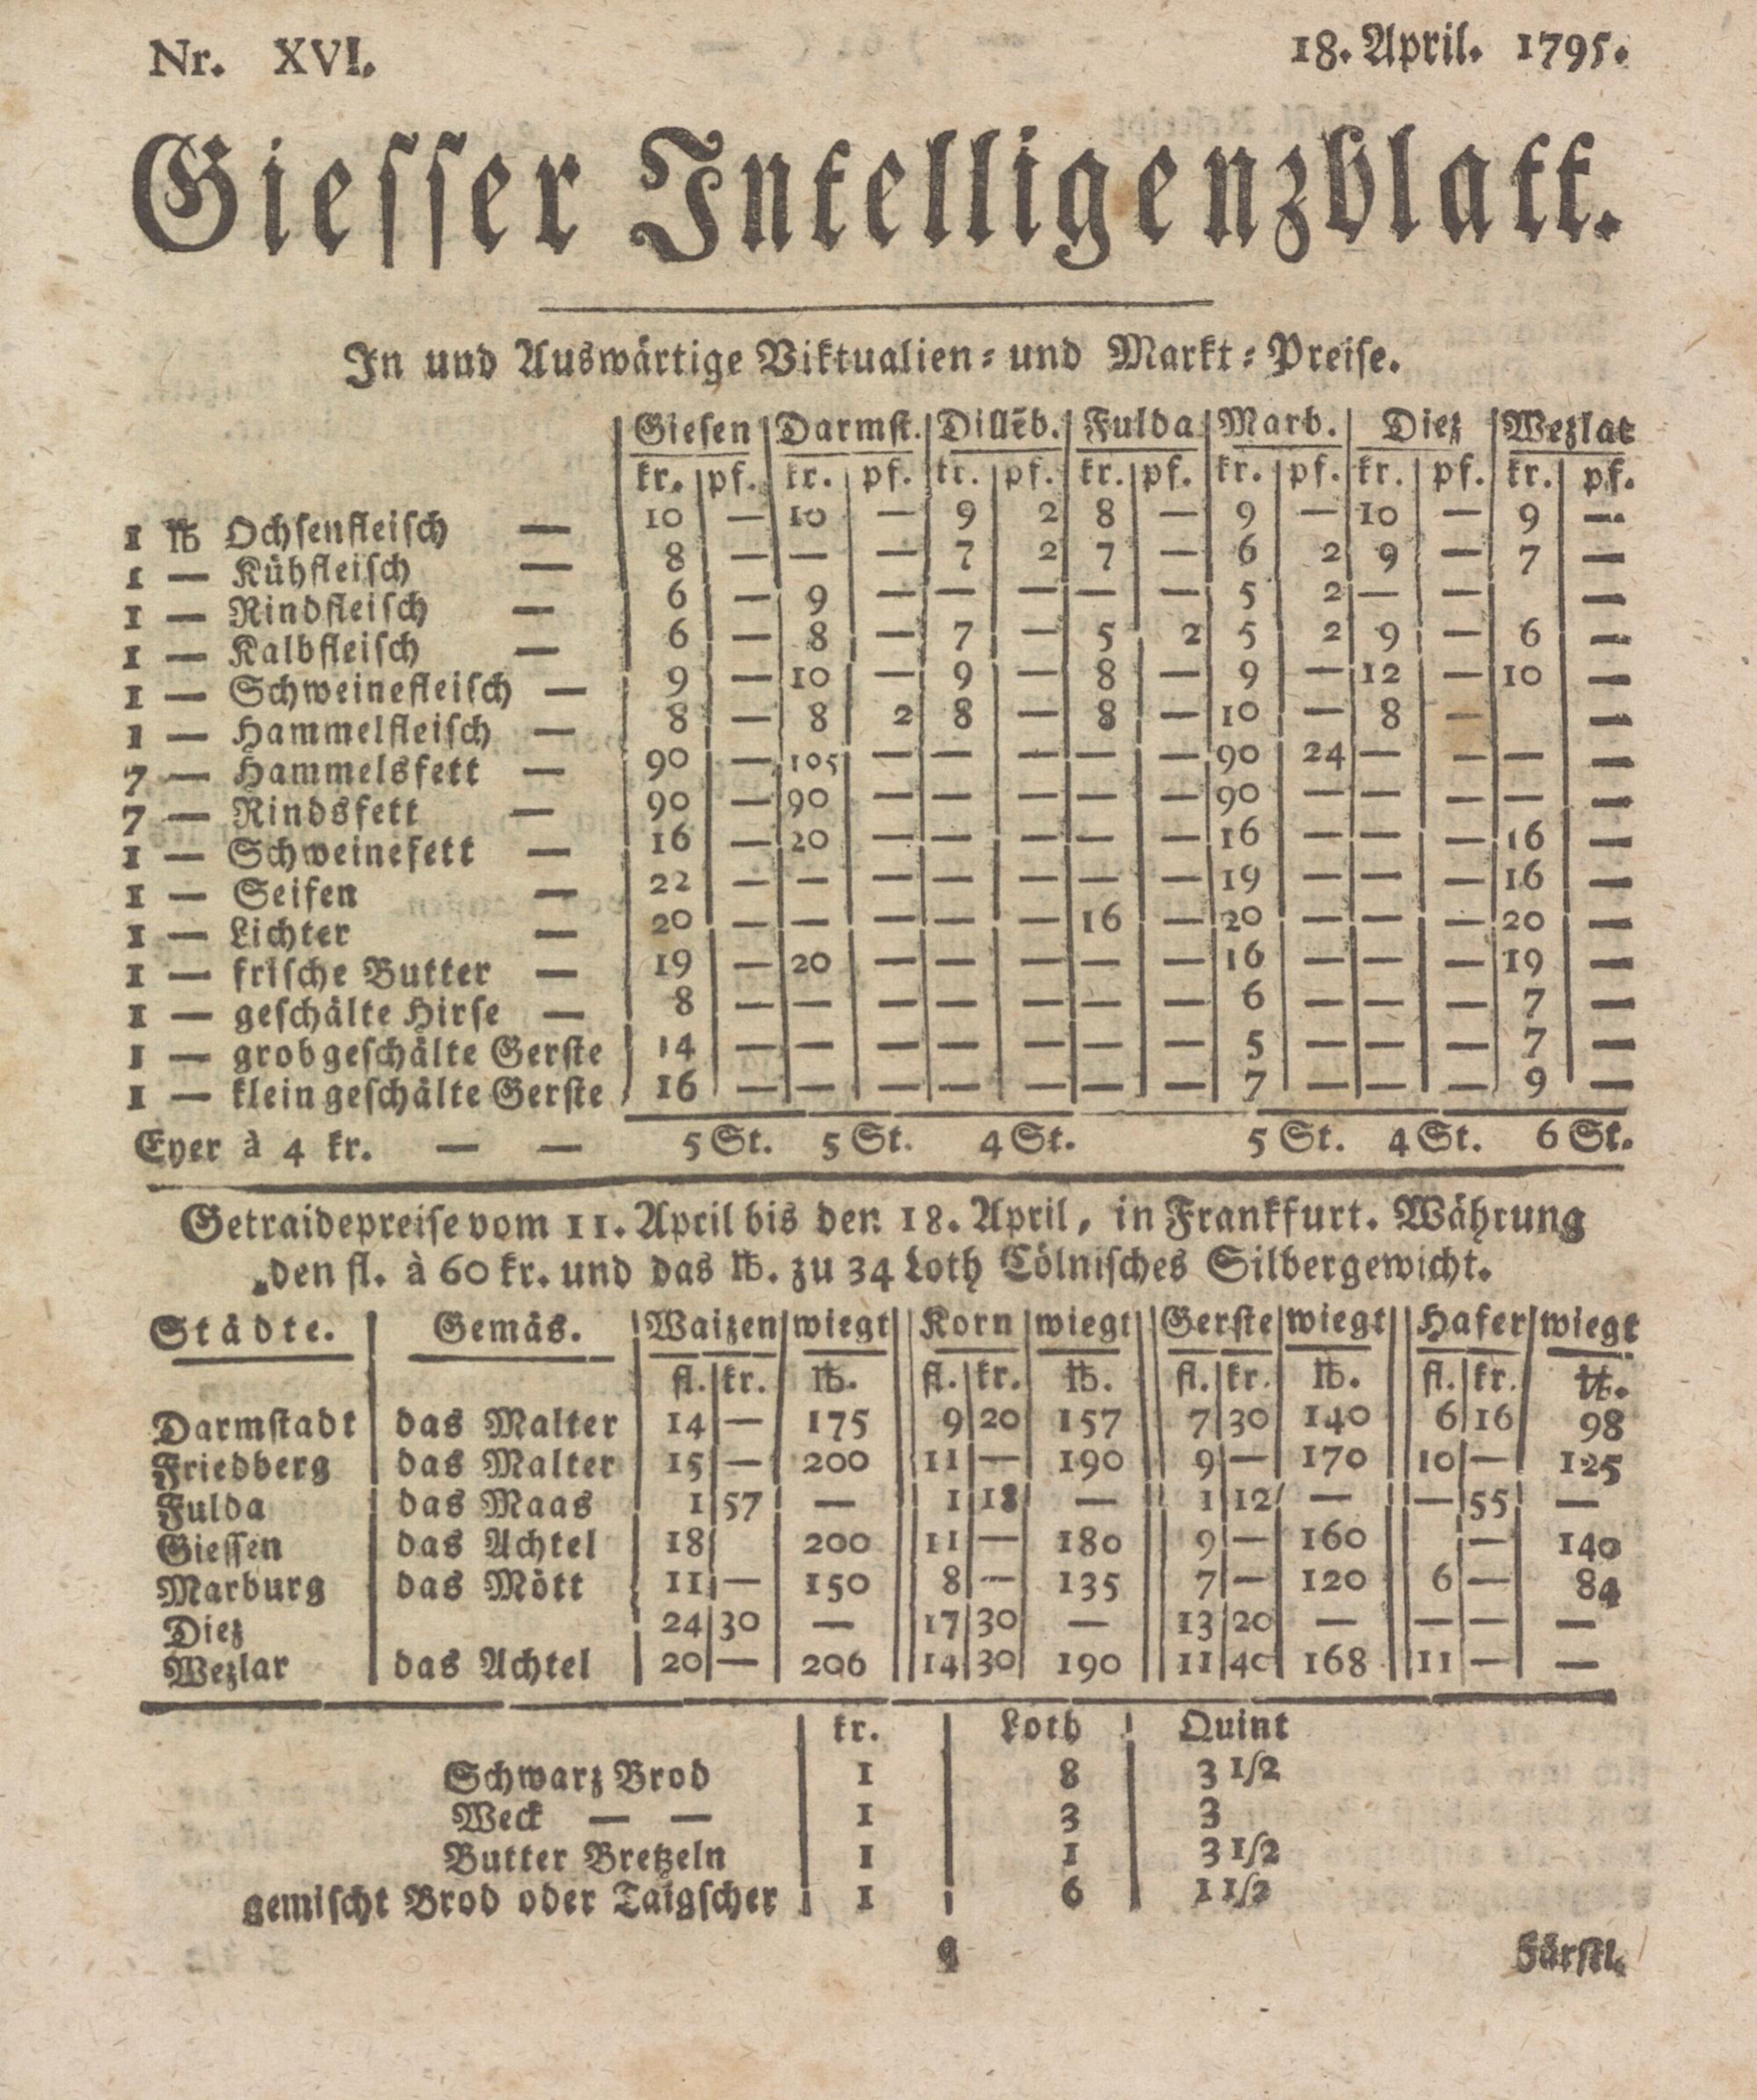 Nr. XVI. 18. April. 1795.
Giesser Intelligenzblatt.
In und Auswärtige Viktualien- und Markt-Preise.
Giesen Darmst. Dillēb. Fulda Marb. Diez Wezlar
kr. pf. kr. pf. kr. pf. kr. pf. kr. pf. kr. pf. kr. pf.
1 ℔ Ochsenfleisch — 10 — 10 — 9 2 8 — 9 — 10 — 9 —
1 — Kühfleisch — 8 — — — 7 2 7 — 6 2 9 — 7 —
1 — Rindfleisch — 6 — 9 — — — — — 5 2 — — —
1 — Kalbfleisch — 6 — 8 — 7 — 5 2 5 2 9 — 6 —
1 — Schweinefleisch — 9 — 10 — 9 — 8 — 9 — 12 — 10 —
1 — Hammelfleisch — 8 — 8 2 8 — 8 — 10 — 8 — —
7 — Hammelsfett — 90 — 105 — — — — — 90 24 — — — —
7 — Rindsfett — 90 — 90 — — — — — 90 — — — — —
1 — Schweinefett — 16 — 20 — — — — — 16 — — — 16 —
1 — Seifen — 22 — — — — — — — 19 — — — 16 —
1 — Lichter — 20 — — — — — 16 — 20 — — — 20 —
1 — frische Butter — 19 — 20 — — — — — 16 — — — 19 —
1 — geschälte Hirse — 8 — — — — — — — 6 — — — 7 —
1 — grobgeschälte Gerste 14 — — — — — — — 5 — — — 7 —
1 — klein geschälte Gerste 16 — — — — — — — 7 — — — 9 —
Eyer à 4 kr. — — 5 St. 5 St. 4 St. 5 St. 4 St. 6 St.
Getraidepreise vom 11. April bis den 18. April, in Frankfurt. Währung
den fl. à 60 kr. und das ℔. zu 34 Loth Cölnisches Silbergewicht.
Städte. Gemäs. Waizen wiegt Korn wiegt Gerste wiegt Hafer wiegt
fl. kr. ℔. fl. kr. ℔. fl. kr. ℔. fl. kr. ℔.
Darmstadt das Malter 14 — 175 9 20 157 7 30 140 6 16 98
Friedberg das Malter 15 — 200 11 — 190 9 — 170 10 — 125
Fulda das Maas 1 57 — 1 18 — 1 12 — — 55 —
Giessen das Achtel 18 200 11 — 180 9 — 160 — 140
Marburg das Mött 11 — 150 8 — 135 7 — 120 6 — 84
Diez 24 30 — 17 30 — 13 20 — — — —
Wezlar das Achtel 20 — 206 14 30 190 11 40 168 11 — —
kr. Loth Quint
Schwarz Brod 1 8 3 1/2
Weck — — 1 3 3
Butter Bretzeln 1 1 3 1/2
gemischt Brod oder Taigscher 1 6 1 1/2
q Fürstl.